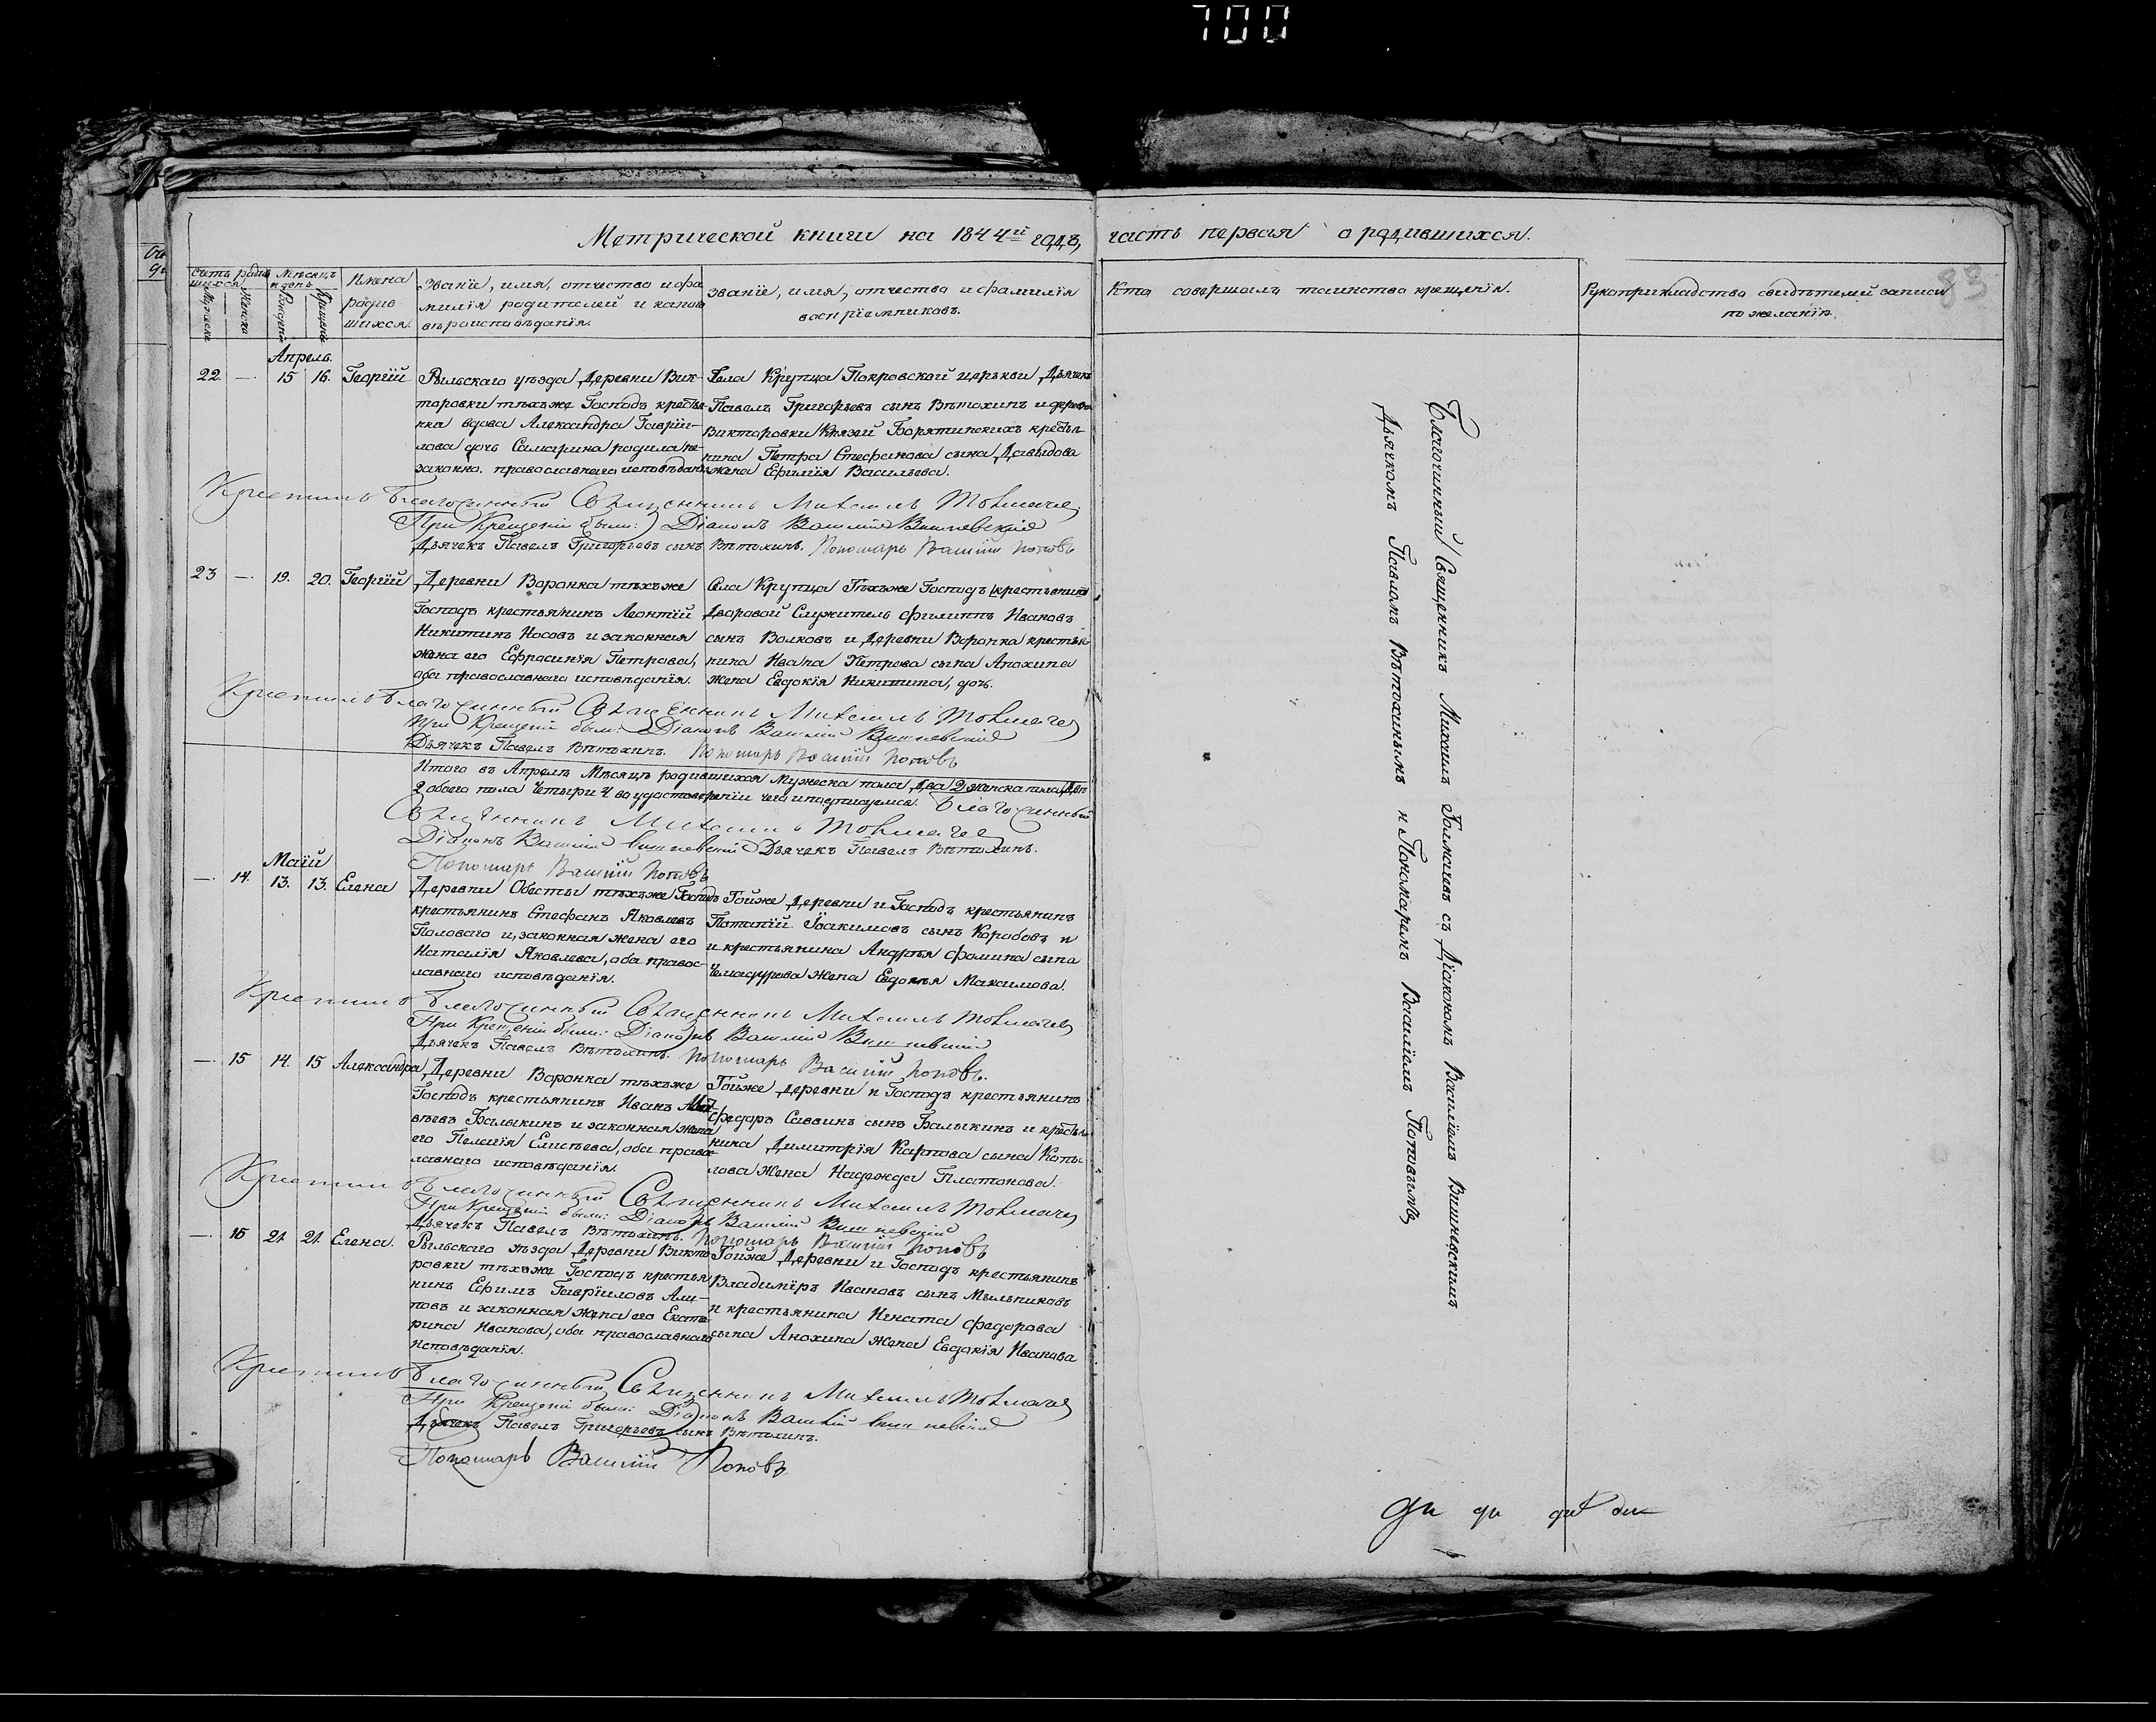 700
Метрической книги на 1844й годъ, часть первая о родившихся.
83
Счетъ родив
шихся.
Мужеска
Женска
Мѣсяцъ
и день
Рожденія
Крещенія
Имена
родив
шихся.
Званіе, имя, отчество и фа
милія родителей и какого
вѣроисповѣданія.
Званіе, имя, отчество и фамилія
воспріемниковъ.
Кто совершалъ таинство крещенія.
Рукоприкладство свидѣтелей записи
по желанію.
Апрель.
22. — 15 16. Георгій
Рыльскаго уѣзда Деревни Вик-
торовки тѣхъже Господъ крестья
нка вдова Александра Гаврїи-
лова дочь Самарина родила не-
законно. православнаго исповѣдан.
Села Крупца Покровской церькви Дьячекъ
Павелъ Григорьевъ сынъ Вѣтохинъ и деревни
Викторовки Князей Борятинскихъ крестья-
нина Петра Стефанова сына Давыдова
жена Ефимія Васильева.
Крестилъ Благочинный Священникъ Михаилъ Толмачев
При Крещеніи были: Діаконъ Василій Вишневскій
Дьячекъ Павелъ Григорьевъ сынъ Вѣтохинъ. Пономарь Василій Поповъ
23 — 19. 20. Георгій
Деревни Воронка тѣхъже
Господъ крестьянинъ Леонтій
Никитинъ Носовъ и законная
жена его Ефросинія Петрова,
оба православнаго исповѣданія.
Села Крупца Тѣхъже Господъ крестьянинъ
Дворовой Служитель Филиппъ Ивановъ
сынъ Волковъ и Деревни Воронка крестья-
нина Ивана Петрова сына Анохина
жена Евдокія Никитина, дочь.
Крестилъ Благочинный Священникъ Михаилъ Толмачев
При Крещеніи были: Діаконъ Василій Вишневскій
Дьячекъ Павелъ Вѣтохинъ. Пономарь Василій Поповъ
Итого въ Апрелѣ Мѣсяцѣ родившихся Мужеска пола Два 2 женска пола Двѣ
2 обоего пола Четыри 4 во удостовѣреніи чего и подписуемся. Благочинный
Священникъ Михаилъ Толмачев
Діаконъ Василій Вишневскій Дьячекъ Павелъ Вѣтохинъ.
Пономарь Василій Поповъ
Маїй
— 14. 13. 13. Елена
Деревни Обесты тѣхъже Господъ
крестьянинъ Стефанъ Яковлевъ
Половаго и законная жена его
Наталія Яковлева, оба правос-
лавнаго исповѣданія.
Тойже Деревни и Господъ крестьянинъ
Потапій Іоакимовъ сынъ Коробовъ и
и крестьянина Андрѣя Фомина сына
жена Евдокія Максимова.
Крестилъ Благочинный Священникъ Михаилъ Толмачев
При Крещеніи были: Діаконъ Василій Вишневскій
Дьячекъ Павелъ Вѣтохинъ. Пономарь Василій Поповъ.
— 15 14. 15 Александра
Деревни Воронка тѣхъже
Господъ крестьянинъ Иванъ
вѣевъ Балыкинъ и законная жена
его Пелагія Елисѣева, оба право
лавнаго исповѣданія.
Тойже Деревни и Господъ крестьянинъ
Федоръ Саввинъ сынъ Балыкинъ и крестья
нина Димитрія Карпова сына Копы-
лова Жена Надежда Платонова.
Крестилъ Благочинный Священникъ Михаилъ Толмачев
При Крещеніи были: Діаконъ Василій Вишневскій
Дьячекъ Павелъ Вѣтохинъ. Пономарь Василій Поповъ
— 16 21. 21. Елена.
Рыльскаго уѣзда Деревни Викто
ровки тѣхъже Господъ крестья
нинъ Ефимъ Гавріиловъ Али-
повъ и законная жена его Екате-
рина Иванова, оба православнаго
исповѣданія.
Тойже Деревни и Господъ крестьянинъ
Владимїръ Ивановъ сынъ Мыльниковъ
и крестьянина Игната Федорова
сына Анохина жена Евдокія Иванова
Крестилъ Благочинный Священникъ Михаилъ Толмачев
При Крещеніи были: Діаконъ Василій Вишневскій
Дьячекъ Павелъ Григорьевъ сынъ Вѣтохинъ.
Пономарь Василій Поповъ
Благочинный Священникъ Михаилъ Толмачевъ съ Діакономъ Василіемъ Вишневскимъ
Дьячкомъ Павломъ Вѣтохинымъ и Пономаремъ Василіемъ Поповымъ
ди ди ди ди